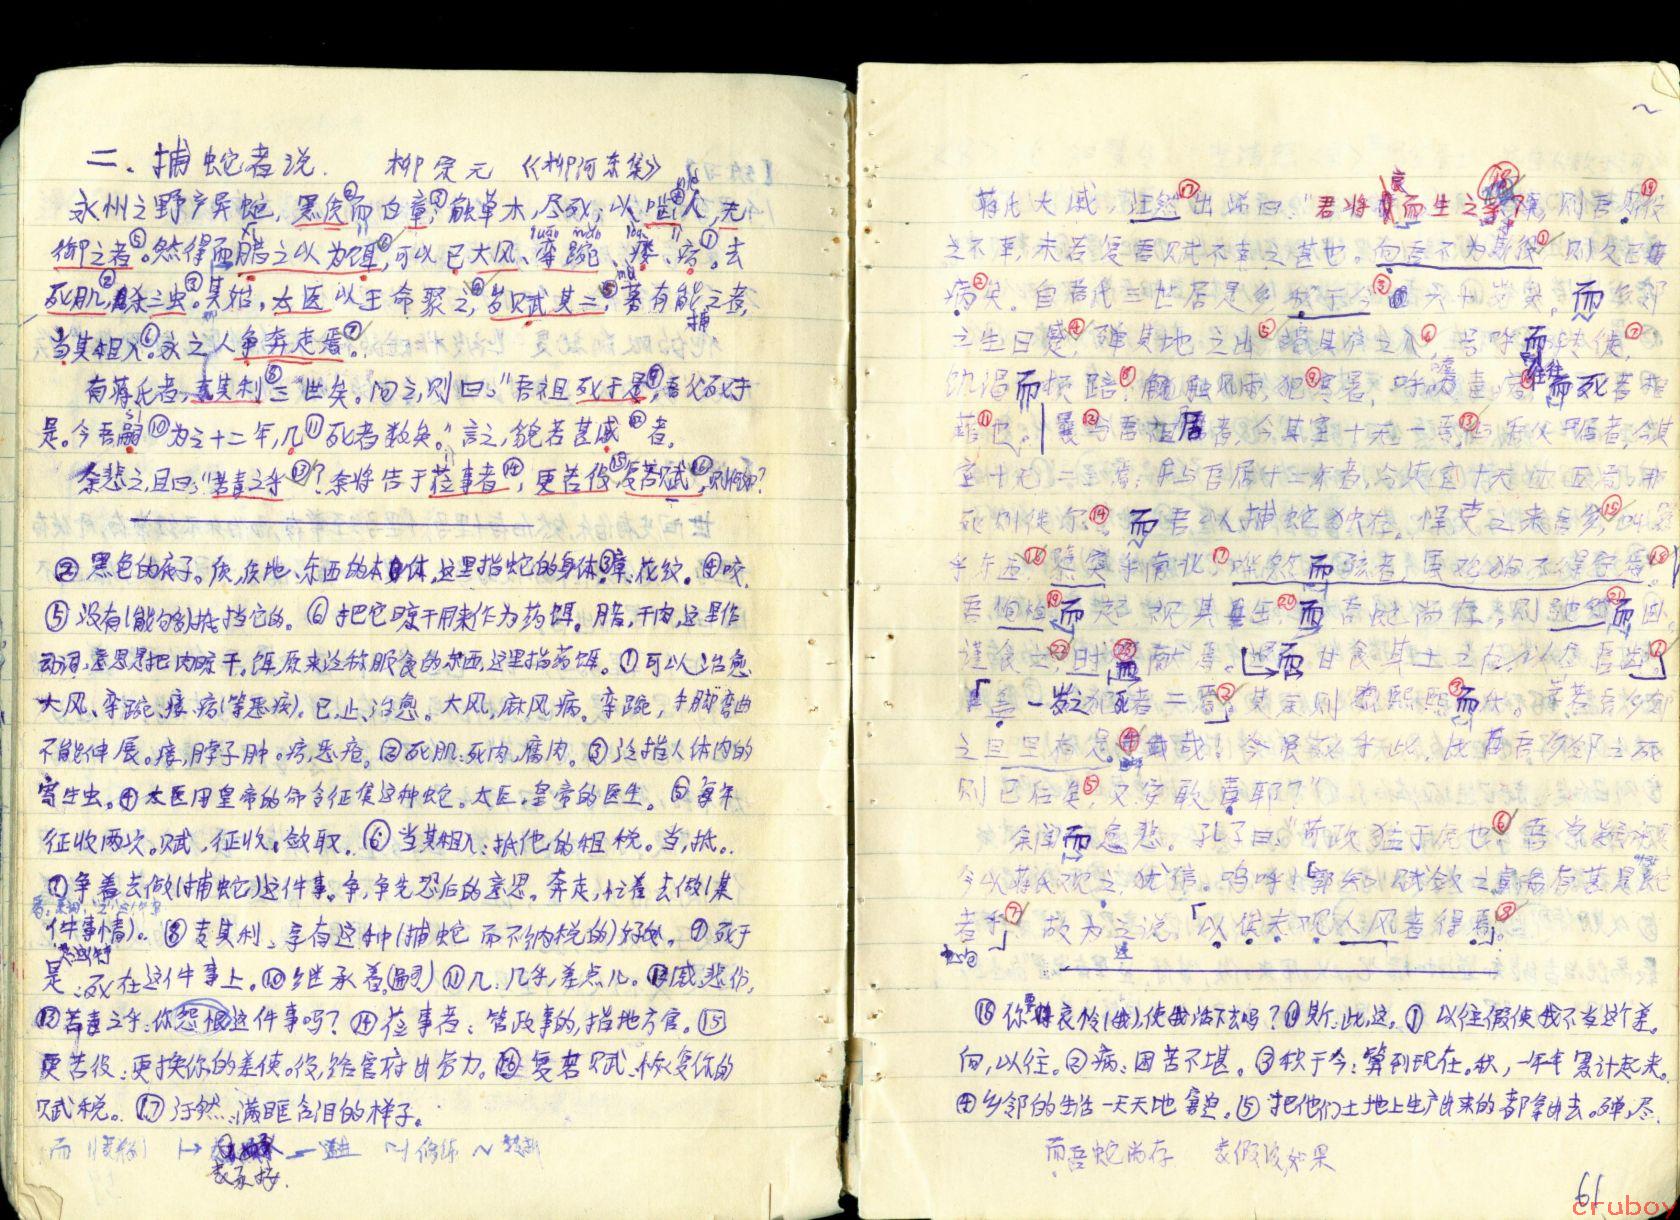 二、捕蛇者说. 柳宗元 《柳河东集》
永州之野产异蛇,黑质而白章,触草木,尽死;以啮人,无
御之者⑤。然得而腊之以为饵⑥,可以已大风、挛踠、瘘、疠①。去
死肌②,杀三虫③。其始,太医以王命聚之④,岁赋其二⑤,募有能捕之者,
当其租入⑥。永之人争奔走焉⑦。
有蒋氏者,专其利⑧三世矣。问之,则曰:"吾祖死于是⑨,吾父死于
是。今吾嗣⑩为之十二年,几⑪死者数矣。"言之,貌若甚戚⑫者。
余悲之,且曰:"若毒之乎⑬?余将告于莅事者⑭,更若役⑮,复若赋⑯,则何如?
②黑色的底子。质,质地、东西的本体,这里指蛇的身体③章:花纹。④咬.
⑤没有(能够)抵挡它的。⑥把它晾干用来作为药饵。腊,干肉,这里作
动词,意思是把肉晾干。饵,原来泛称服食的东西,这里指药饵。①可以治愈
大风、挛踠、瘘、疠(等恶病)。已,止、治愈。大风,麻风病。挛踠,手脚弯曲
不能伸展。瘘,脖子肿。疠,恶疮。②死肌:死肉,腐肉。③泛指人体内的
寄生虫。④太医用皇帝的命令征集这种蛇。太医,皇帝的医生。⑤每年
征收两次。赋,征收,敛取。⑥当其租入:抵他的租税。当,抵。
⑦争着去做(捕蛇)这件事。争,争先恐后的意思。奔走,忙着去做(某
件事情)。⑧专其利:享有这种(捕蛇而不纳税的)好处。⑨死于
是:死在这件事上。⑩继承着(嗣)⑪几:几乎,差点儿。⑫戚,悲伤,
⑬若毒之乎:你怨恨这件事吗?⑭莅事者:管政事的,指地方官。⑮
更若役:更换你的差使。役,给官府出劳力。⑯复若赋:恢复你的
赋税。⑰汪然,满眶含泪的样子。
而 修饰
表承接.
蒋氏大戚,汪然⑰出涕曰:"君将哀而生之乎⑱?则吾斯⑲役
之不幸,未若复吾赋不幸之甚也。向吾不为斯役①,则久已
病②矣。自吾氏三世居是乡,积于今③六十岁矣。而乡邻
之生日蹙④,殚其地之出⑤,竭其庐之入⑥,号呼而转徙⑦,
饥渴而顿踣⑧,触风雨,犯⑨寒暑,呼嘘毒⑩,往往而死者相
藉⑪也。曩⑫与吾祖居者,今其室十无一焉⑬。与吾父居者,今其
室十无二三焉;与吾居十二年者,今其室十无四五焉。非
死则徙尔⑭。而吾以捕蛇独存。悍吏之来吾乡⑮,叫嚣
乎东西⑯,隳突乎南北⑰,哗然而骇者,虽鸡狗不得宁焉⑱。
吾恂恂⑲而起,视其缶⑳,而吾蛇尚存,则弛然㉑而卧。
谨食之㉒,时㉓而献焉。退而甘食其土之有,以尽吾齿①。
盖一岁之犯死者二焉②。其余则熙熙③而乐。岂若吾乡邻
之旦旦有是④哉!今虽死乎此,比吾乡邻之死
则已后矣⑤,又安敢毒耶?"
余闻而愈悲。孔子曰:"苛政猛于虎也⑥。吾尝疑乎是
今以蒋氏观之,犹信。呜呼!孰知赋敛之毒有甚是蛇
者乎⑦,故为之说,以俟夫观人风者得焉⑧。
⑱你要哀怜(我),使我活下去吗?⑲斯:此,这。①以往假使我不当这个差。
向,以往。②病:困苦不堪。③积于今:算到现在。积,一年年累计起来。
④乡邻的生活一天天地窘迫。⑤把他们土地上生产出来的都拿出去。殚,尽.
而吾蛇尚存 表假设如果
61
cruboy